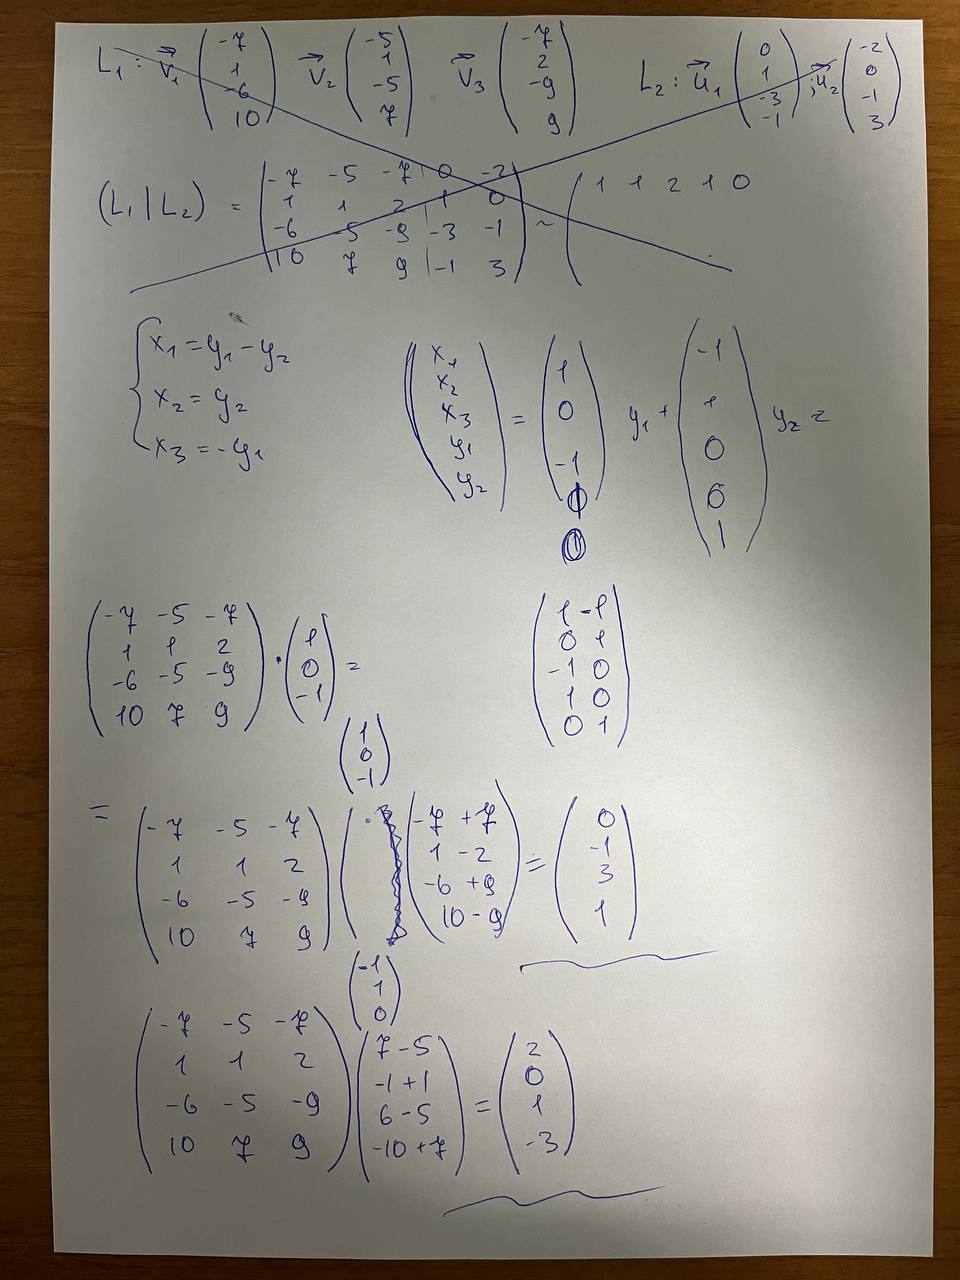 L₁ : v⃗₁ (-7 1 -6 10) v⃗₂ (-5 1 -5 7) v⃗₃ (-7 2 -9 9) L₂ : u⃗₁ (0 1 -3 -1) ; u⃗₂ (-2 0 -1 3)
(L₁ | L₂) = ( -7 -5 -7 | 0 -2
1 1 2 | 1 0
-6 -5 -9 | -3 -1
10 7 9 | -1 3 ) ~ ( 1 1 2 1 0
{ x₁ = y₁ - y₂
x₂ = y₂
x₃ = -y₁
(x₁ x₂ x₃ y₁ y₂) = (1 0 -1 1 0) y₁ + (-1 1 0 0 1) y₂ =
( -7 -5 -7
1 1 2
-6 -5 -9
10 7 9 ) · (1 0 -1) =
( 1 -1
0 1
-1 0
1 0
0 1 )
(1 0 -1)
= ( -7 -5 -7
1 1 2
-6 -5 -9
10 7 9 ) ( -7 + 7
1 - 2
-6 + 9
10 - 9 ) = (0 -1 3 1)
(-1 1 0)
( -7 -5 -7
1 1 2
-6 -5 -9
10 7 9 ) ( 7 - 5
-1 + 1
6 - 5
-10 + 7 ) = (2 0 1 -3)